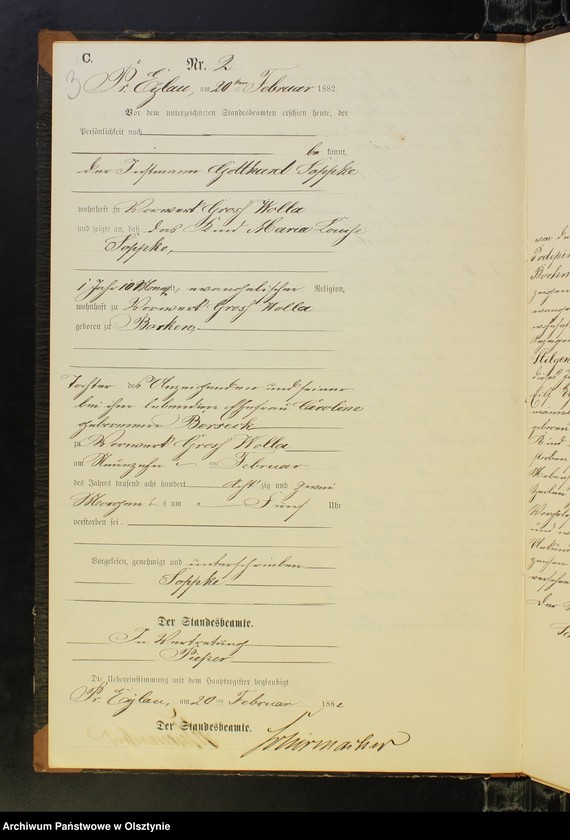 C.
Nr. 2
3
Pr. Eylau, am 20ten Februar 1882.
Vor dem unterzeichneten Standesbeamten erschien heute, der
Persönlichkeit nach
be kannt,
der Instmann Gotthard Soppke
wohnhaft zu Vorwerk Gross Wolla
und zeigte an, daß das Kind Maria Louise
Soppke,
1 Jahr 10 Monat, evangelischer Religion,
wohnhaft zu Vorwerk Gross Wolla
geboren zu Borken,
Tochter des Anzeigenden und seiner
bei ihm lebenden Ehefrau Caroline
geborenen Borseck
zu Vorwerk Gross Wolla
am Neunzehn ten Februar
des Jahres tausend acht hundert acht zig und zwei
Morgens um Fünf Uhr
verstorben sei.
Vorgelesen, genehmigt und unterschrieben
Soppke
Der Standesbeamte.
In Vertretung
Pieper
Die Uebereinstimmung mit dem Hauptregister beglaubigt.
Pr. Eylau, am 20ten Februar 1882
Der Standesbeamte.
Schirmacher
Archiwum Państwowe w Olsztynie